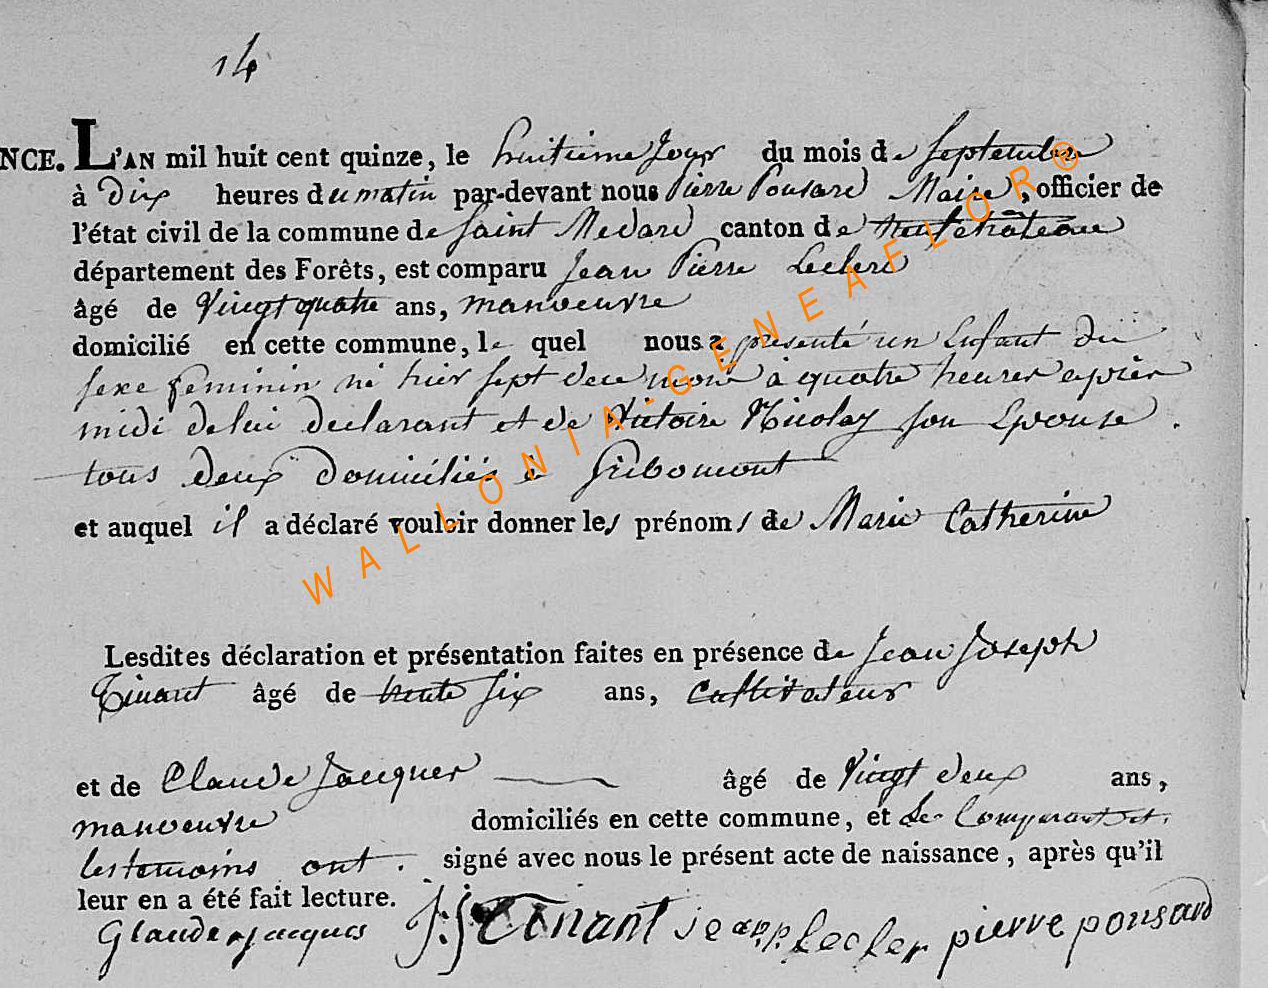 14
NCE. L'AN mil huit cent quinze, le huitieme Jour du mois de Septembre
à Dix heures du matin par-devant nous Pierre Ponsard Maire, officier de
l'état civil de la commune de Saint Medard canton de Neufchâteau
département des Forêts, est comparu Jean Pierre Leclerc
âgé de Vingt quatre ans, manoeuvre
domicilié en cette commune, le quel nous a presenté un Enfant du
sexe feminin né hier sept du mois à quatre heures après
midi de lui declarant et de Victoire Nicolay son Epouse.
tous deux Domiciliés à Gribomont
et auquel il a déclaré vouloir donner les prénoms de Marie Catherine
Lesdites déclaration et présentation faites en présence de Jean Joseph
Tinant âgé de trente Six ans, Cultivateur
et de Claude Jacques âgé de Vingt deux ans,
manoeuvre domiciliés en cette commune, et Le Comparant et.
les temoins ont. signé avec nous le présent acte de naissance, après qu'il
leur en a été fait lecture.
Glaude jacques J:J Tinant jean p.p. Lecler pierre ponsard
WALLONIA-GENEAFLOR®